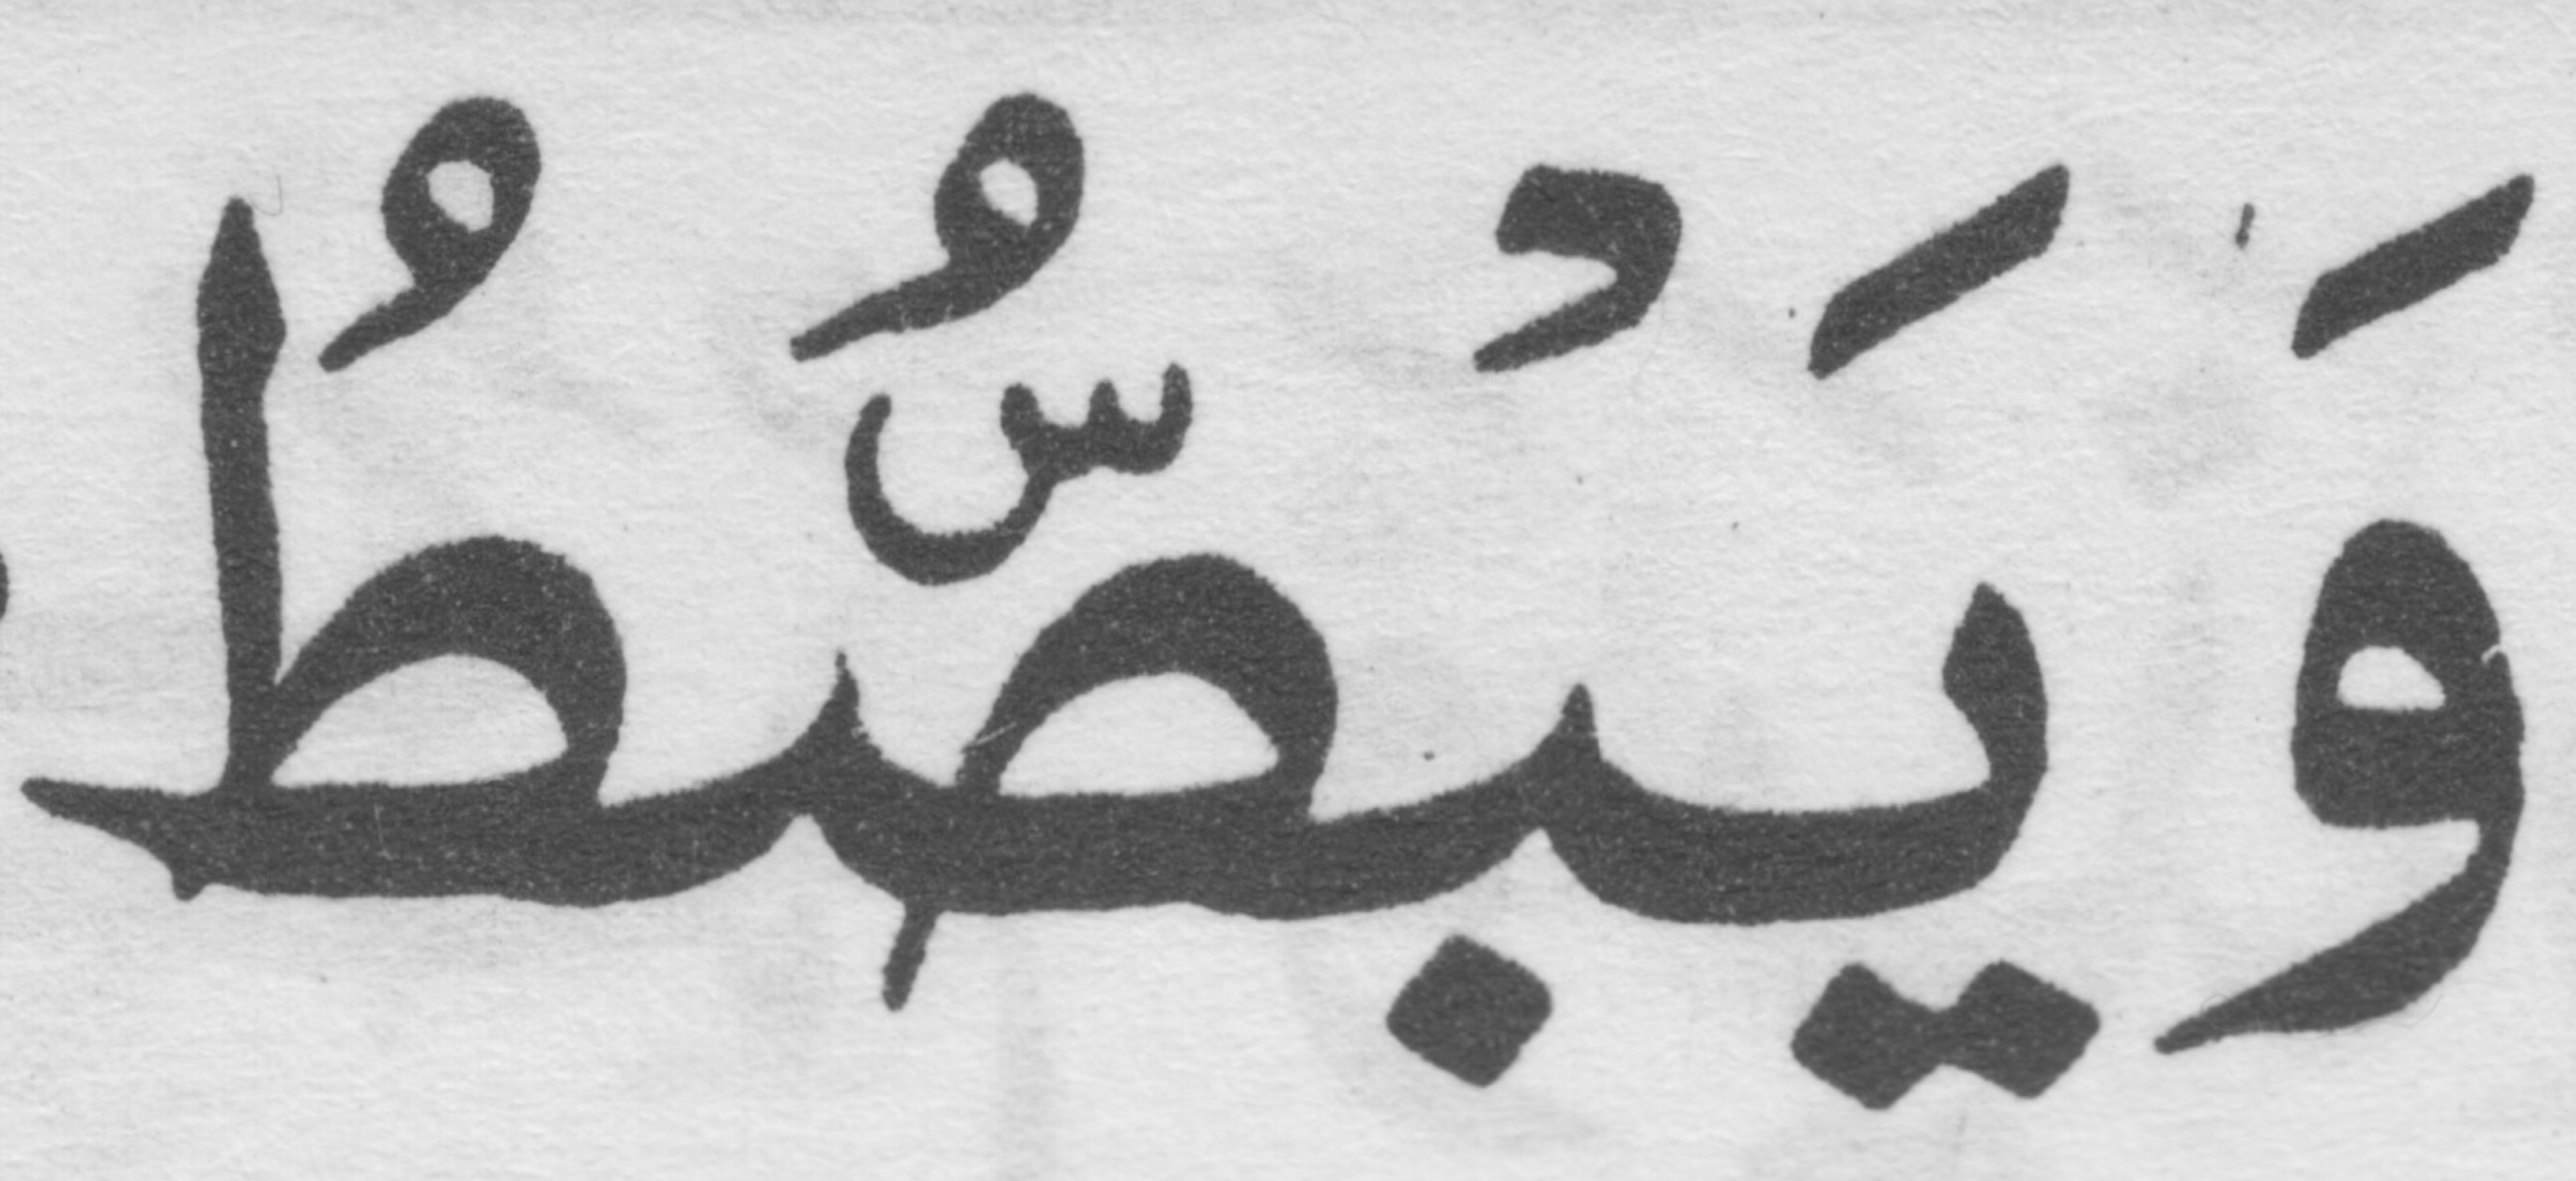 وَيَبْصُۜطُ